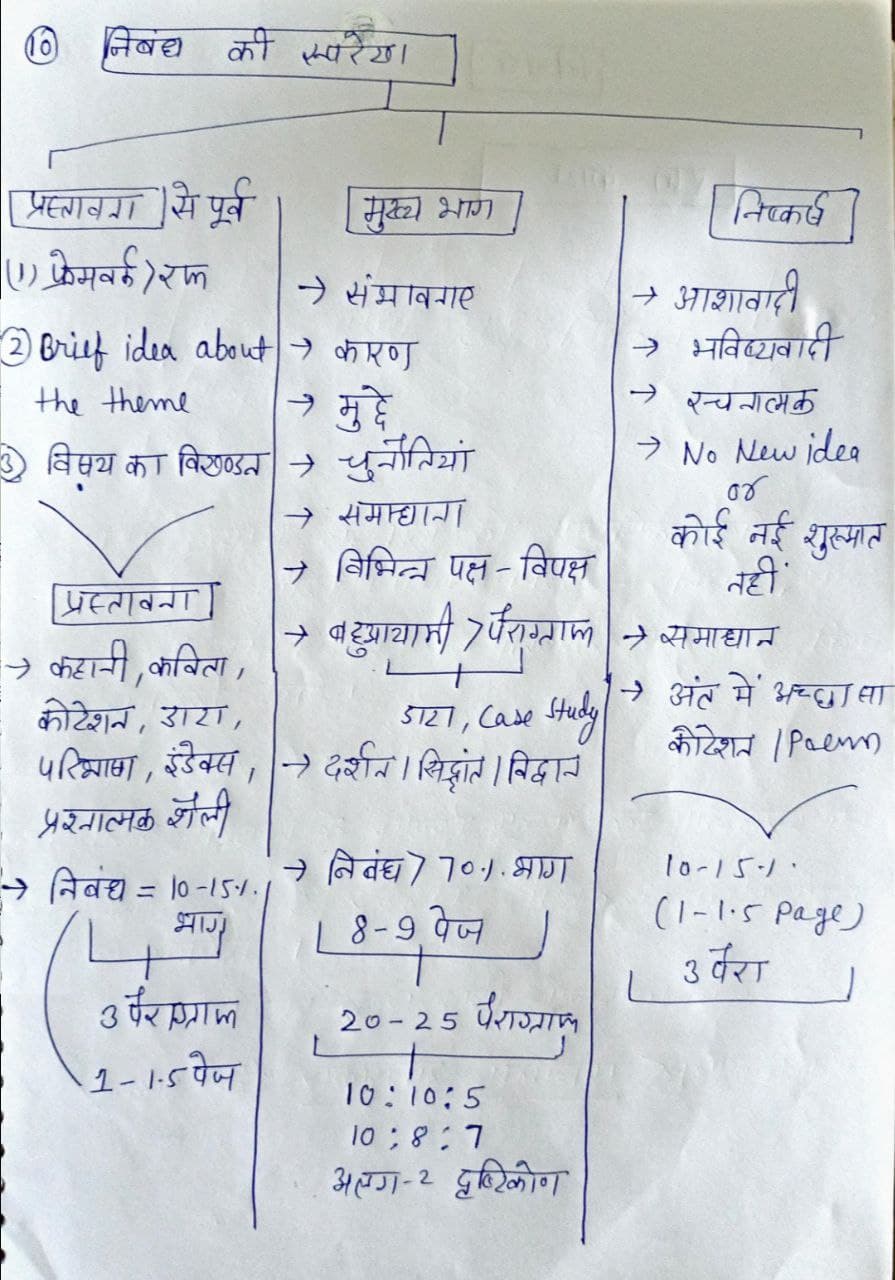 10 निबंध की रूपरेखा
प्रस्तावना से पूर्व
(1) फ्रेमवर्क > रफ
2 Brief idea about
the theme
3 विषय का विखण्डन
प्रस्तावना
→ कहानी, कविता,
कोटेशन, डाटा,
परिभाषा, इंडेक्स,
प्रश्नात्मक शैली
→ निबंध = 10-15%
भाग
3 पैराग्राफ
1-1.5 पेज
मुख्य भाग
→ संभावनाए
→ कारण
→ मुद्दे
→ चुनौतियां
→ समाधान
→ विभिन्न पक्ष - विपक्ष
→ बहुआयामी > पैराग्राफ
डाटा, Case Study
→ दर्शन / सिद्धांत / विद्वान
→ निबंध > 70% भाग
8-9 पेज
20-25 पैराग्राफ
10:10:5
10:8:7
अलग-2 दृष्टिकोण
निष्कर्ष
→ आशावादी
→ भविष्यवादी
→ रचनात्मक
→ No New idea
or
कोई नई शुरूआत
नहीं
→ समाधान
→ अंत में अच्छा सा
कोटेशन / Poem
10-15%
(1-1.5 Page)
3 पैरा